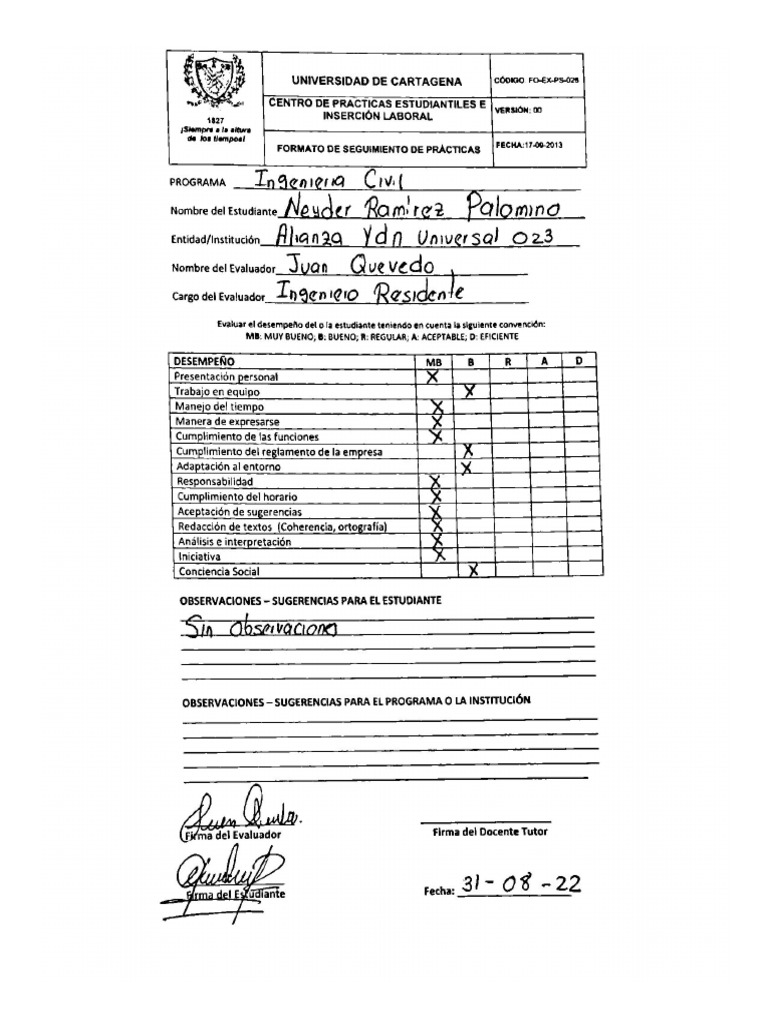 1827
¡Siempre a la altura
de los tiempos!
UNIVERSIDAD DE CARTAGENA
CENTRO DE PRACTICAS ESTUDIANTILES E
INSERCIÓN LABORAL
FORMATO DE SEGUIMIENTO DE PRÁCTICAS
CÓDIGO FO-EX-PS-026
VERSIÓN: 00
FECHA:17-09-2013
PROGRAMA Ingenieria Civil
Nombre del Estudiante Neyder Ramirez Palomino
Entidad/Institución Alianza Ydn Universal 023
Nombre del Evaluador Juan Quevedo
Cargo del Evaluador Ingeniero Residente
Evaluar el desempeño del o la estudiante teniendo en cuenta la siguiente convención:
MB: MUY BUENO; B: BUENO; R: REGULAR; A: ACEPTABLE; D: EFICIENTE
DESEMPEÑO MB B R A D
Presentación personal X
Trabajo en equipo X
Manejo del tiempo X
Manera de expresarse X
Cumplimiento de las funciones X
Cumplimiento del reglamento de la empresa X
Adaptación al entorno X
Responsabilidad X
Cumplimiento del horario X
Aceptación de sugerencias X
Redacción de textos (Coherencia, ortografía) X
Análisis e interpretación X
Iniciativa X
Conciencia Social X
OBSERVACIONES – SUGERENCIAS PARA EL ESTUDIANTE
Sin observaciones
OBSERVACIONES – SUGERENCIAS PARA EL PROGRAMA O LA INSTITUCIÓN
Firma del Evaluador
Firma del Docente Tutor
Firma del Estudiante
Fecha: 31-08-22